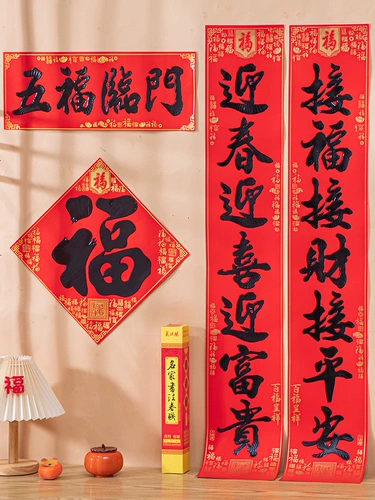 五福臨門
福
福
福
迎春迎喜迎富貴
百福呈祥
福
接福接財接平安
百福呈祥
名家書法春联
福